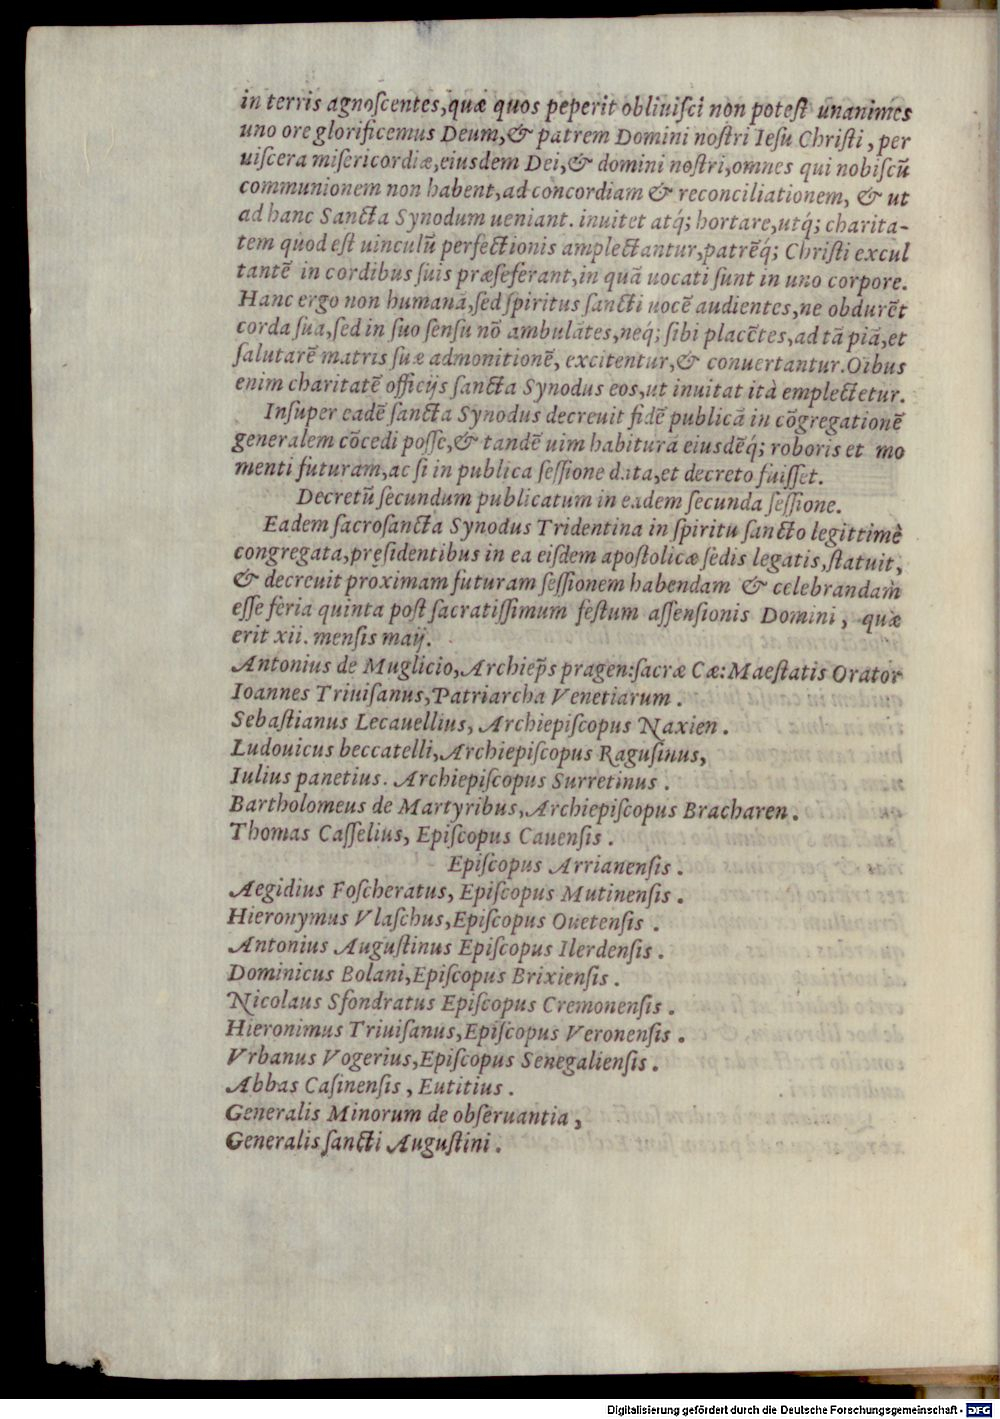 in terris agnoſcentes,quæ quos peperit obliuiſci non poteſt unanimes
uno ore glorificemus Deum,& patrem Domini noſtri Ieſu Chriſti, per
uiſcera miſericordiæ,eiusdem Dei,& domini noſtri,omnes qui nobiſcū
communionem non habent,ad concordiam & reconciliationem, & ut
ad hanc Sancta Synodum ueniant. inuitet atq́; hortare,utq́; charita-
tem quod eſt uinculū perfectionis amplectantur,patrēq́; Chriſti excul
tantē in cordibus ſuis præſeferant,in quā uocati ſunt in uno corpore.
Hanc ergo non humanā,ſed ſpiritus ſancti uocē audientes,ne obdurēt
corda ſua,ſed in ſuo ſenſu nō ambulātes,neq́; ſibi placētes,ad tā piā,et
ſalutarē matris ſuæ admonitionē, excitentur,& conuertantur.Oībus
enim charitatē officijs ſancta Synodus eos,ut inuitat ità emplectetur.
Inſuper eadē ſancta Synodus decreuit fidē publicā in cōgregationē
generalem cōcedi poſſe,& tandē uim habiturā eiusdēq́; roboris et mo
menti futuram,ac ſi in publica ſeſſione data,et decreto fuiſſet.
Decretū ſecundum publicatum in eadem ſecunda ſeſſione.
Eadem ſacroſancta Synodus Tridentina in ſpiritu ſancto legittimè
congregata,pręſidentibus in ea eiſdem apoſtolicæ ſedis legatis,ſtatuit,
& decreuit proximam futuram ſeſſionem habendam & celebrandam
eſſe feria quinta poſt ſacratiſſimum feſtum aſſenſionis Domini, quæ
erit xii. menſis maij.
Antonius de Muglicio,Archiep̄s pragen:ſacræ Cæ:Maeſtatis Orator
Ioannes Triuiſanus,Patriarcha Venetiarum.
Sebaſtianus Lecauellius, Archiepiſcopus Naxien.
Ludouicus beccatelli,Archiepiſcopus Raguſinus,
Iulius panetius. Archiepiſcopus Surretinus.
Bartholomeus de Martyribus,Archiepiſcopus Bracharen.
Thomas Caſſelius, Epiſcopus Cauenſis.
Epiſcopus Arrianenſis.
Aegidius Foſcheratus, Epiſcopus Mutinenſis.
Hieronymus Vlaſchus,Epiſcopus Ouetenſis.
Antonius Auguſtinus Epiſcopus Ilerdenſis.
Dominicus Bolani,Epiſcopus Brixienſis.
Nicolaus Sfondratus Epiſcopus Cremonenſis.
Hieronimus Triuiſanus,Epiſcopus Veronenſis.
Vrbanus Vogerius,Epiſcopus Senegalienſis.
Abbas Caſinenſis, Eutitius.
Generalis Minorum de obſeruantia,
Generalis ſancti Auguſtini.
Digitalisierung gefördert durch die Deutsche Forschungsgemeinschaft - DFG